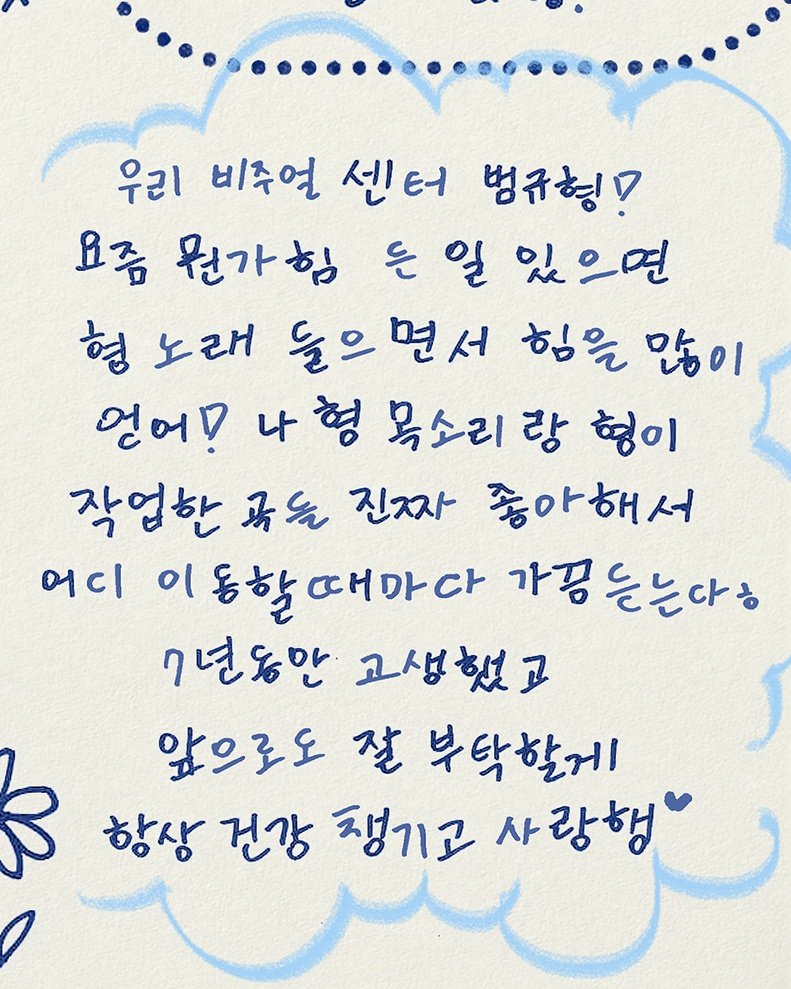 우리 비주얼 센터 범규형!
요즘 뭔가 힘 든 일 있으면
형 노래 들으면서 힘을 많이
얻어! 나 형 목소리랑 형이
작업한 곡들 진짜 좋아해서
어디 이동할때마다 가끔 듣는다ㅎ
7년동안 고생했고
앞으로도 잘 부탁할게
항상 건강 챙기고 사랑행♥